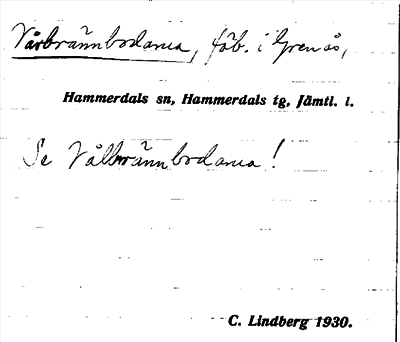 Vårbrännbodarna, fäb. i Grenås,
Hammerdals sn, Hammerdals tg, Jämtl. l.
Se Vålbrännbodarna!
C. Lindberg 1930.